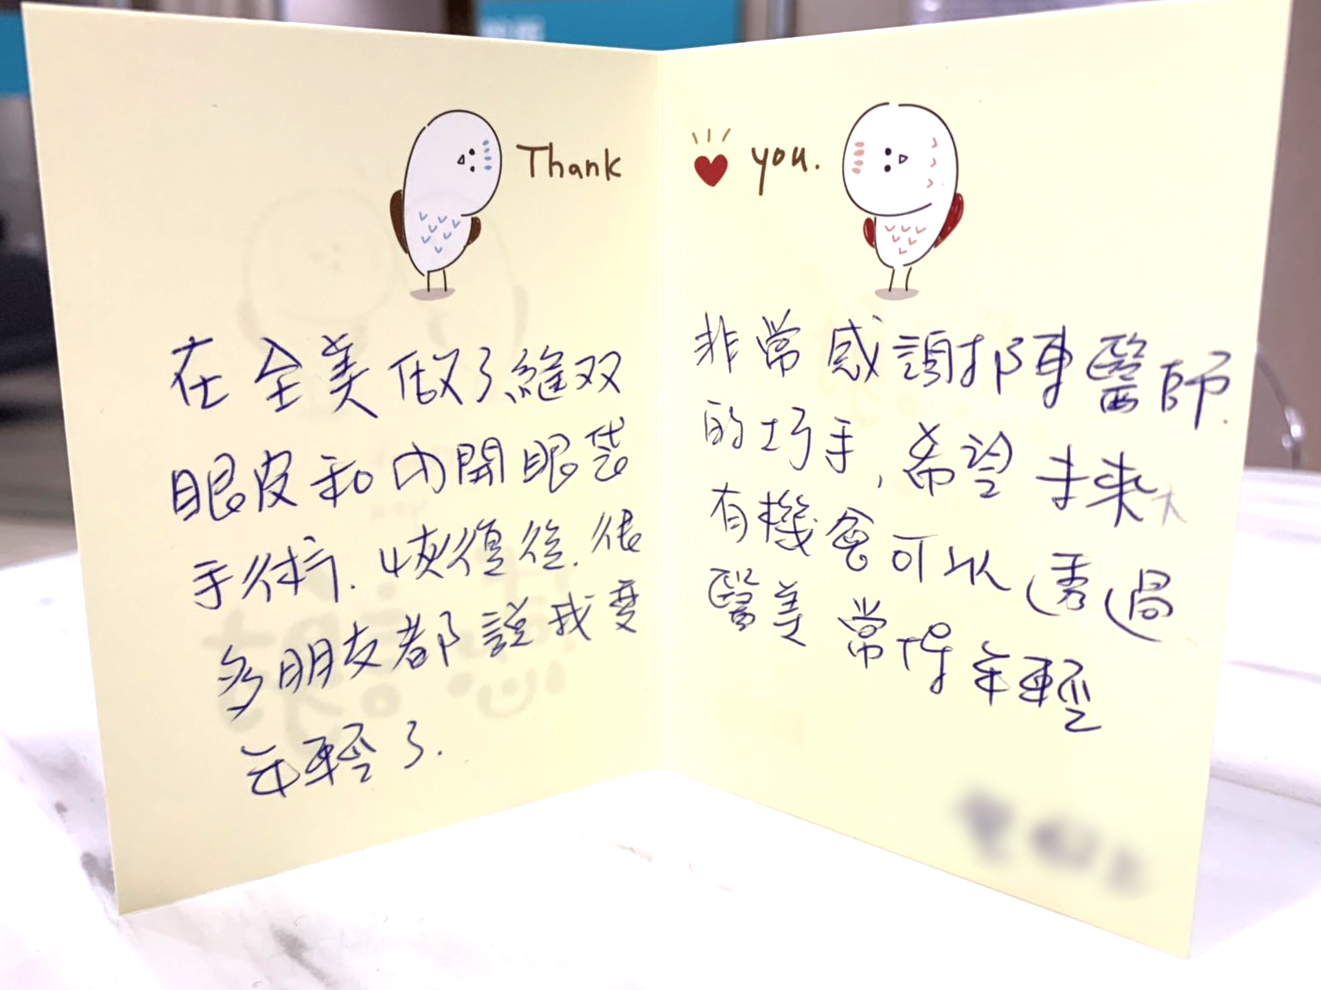 Thank
you.
在全美做了縫双
眼皮和內開眼袋
手術. 恢復後. 很
多朋友都說我變
年輕了.
非常感謝陳醫師.
的巧手, 希望未來
有機會可以透過
醫美常保年輕